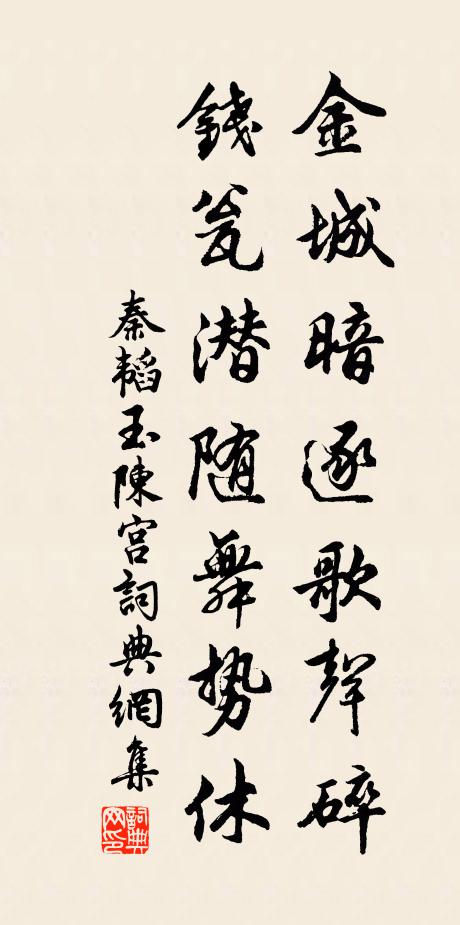 金城暗逐歌聲碎
錢瓮潜随舞势休
秦韬玉陳宫詞典網集
詞典网印